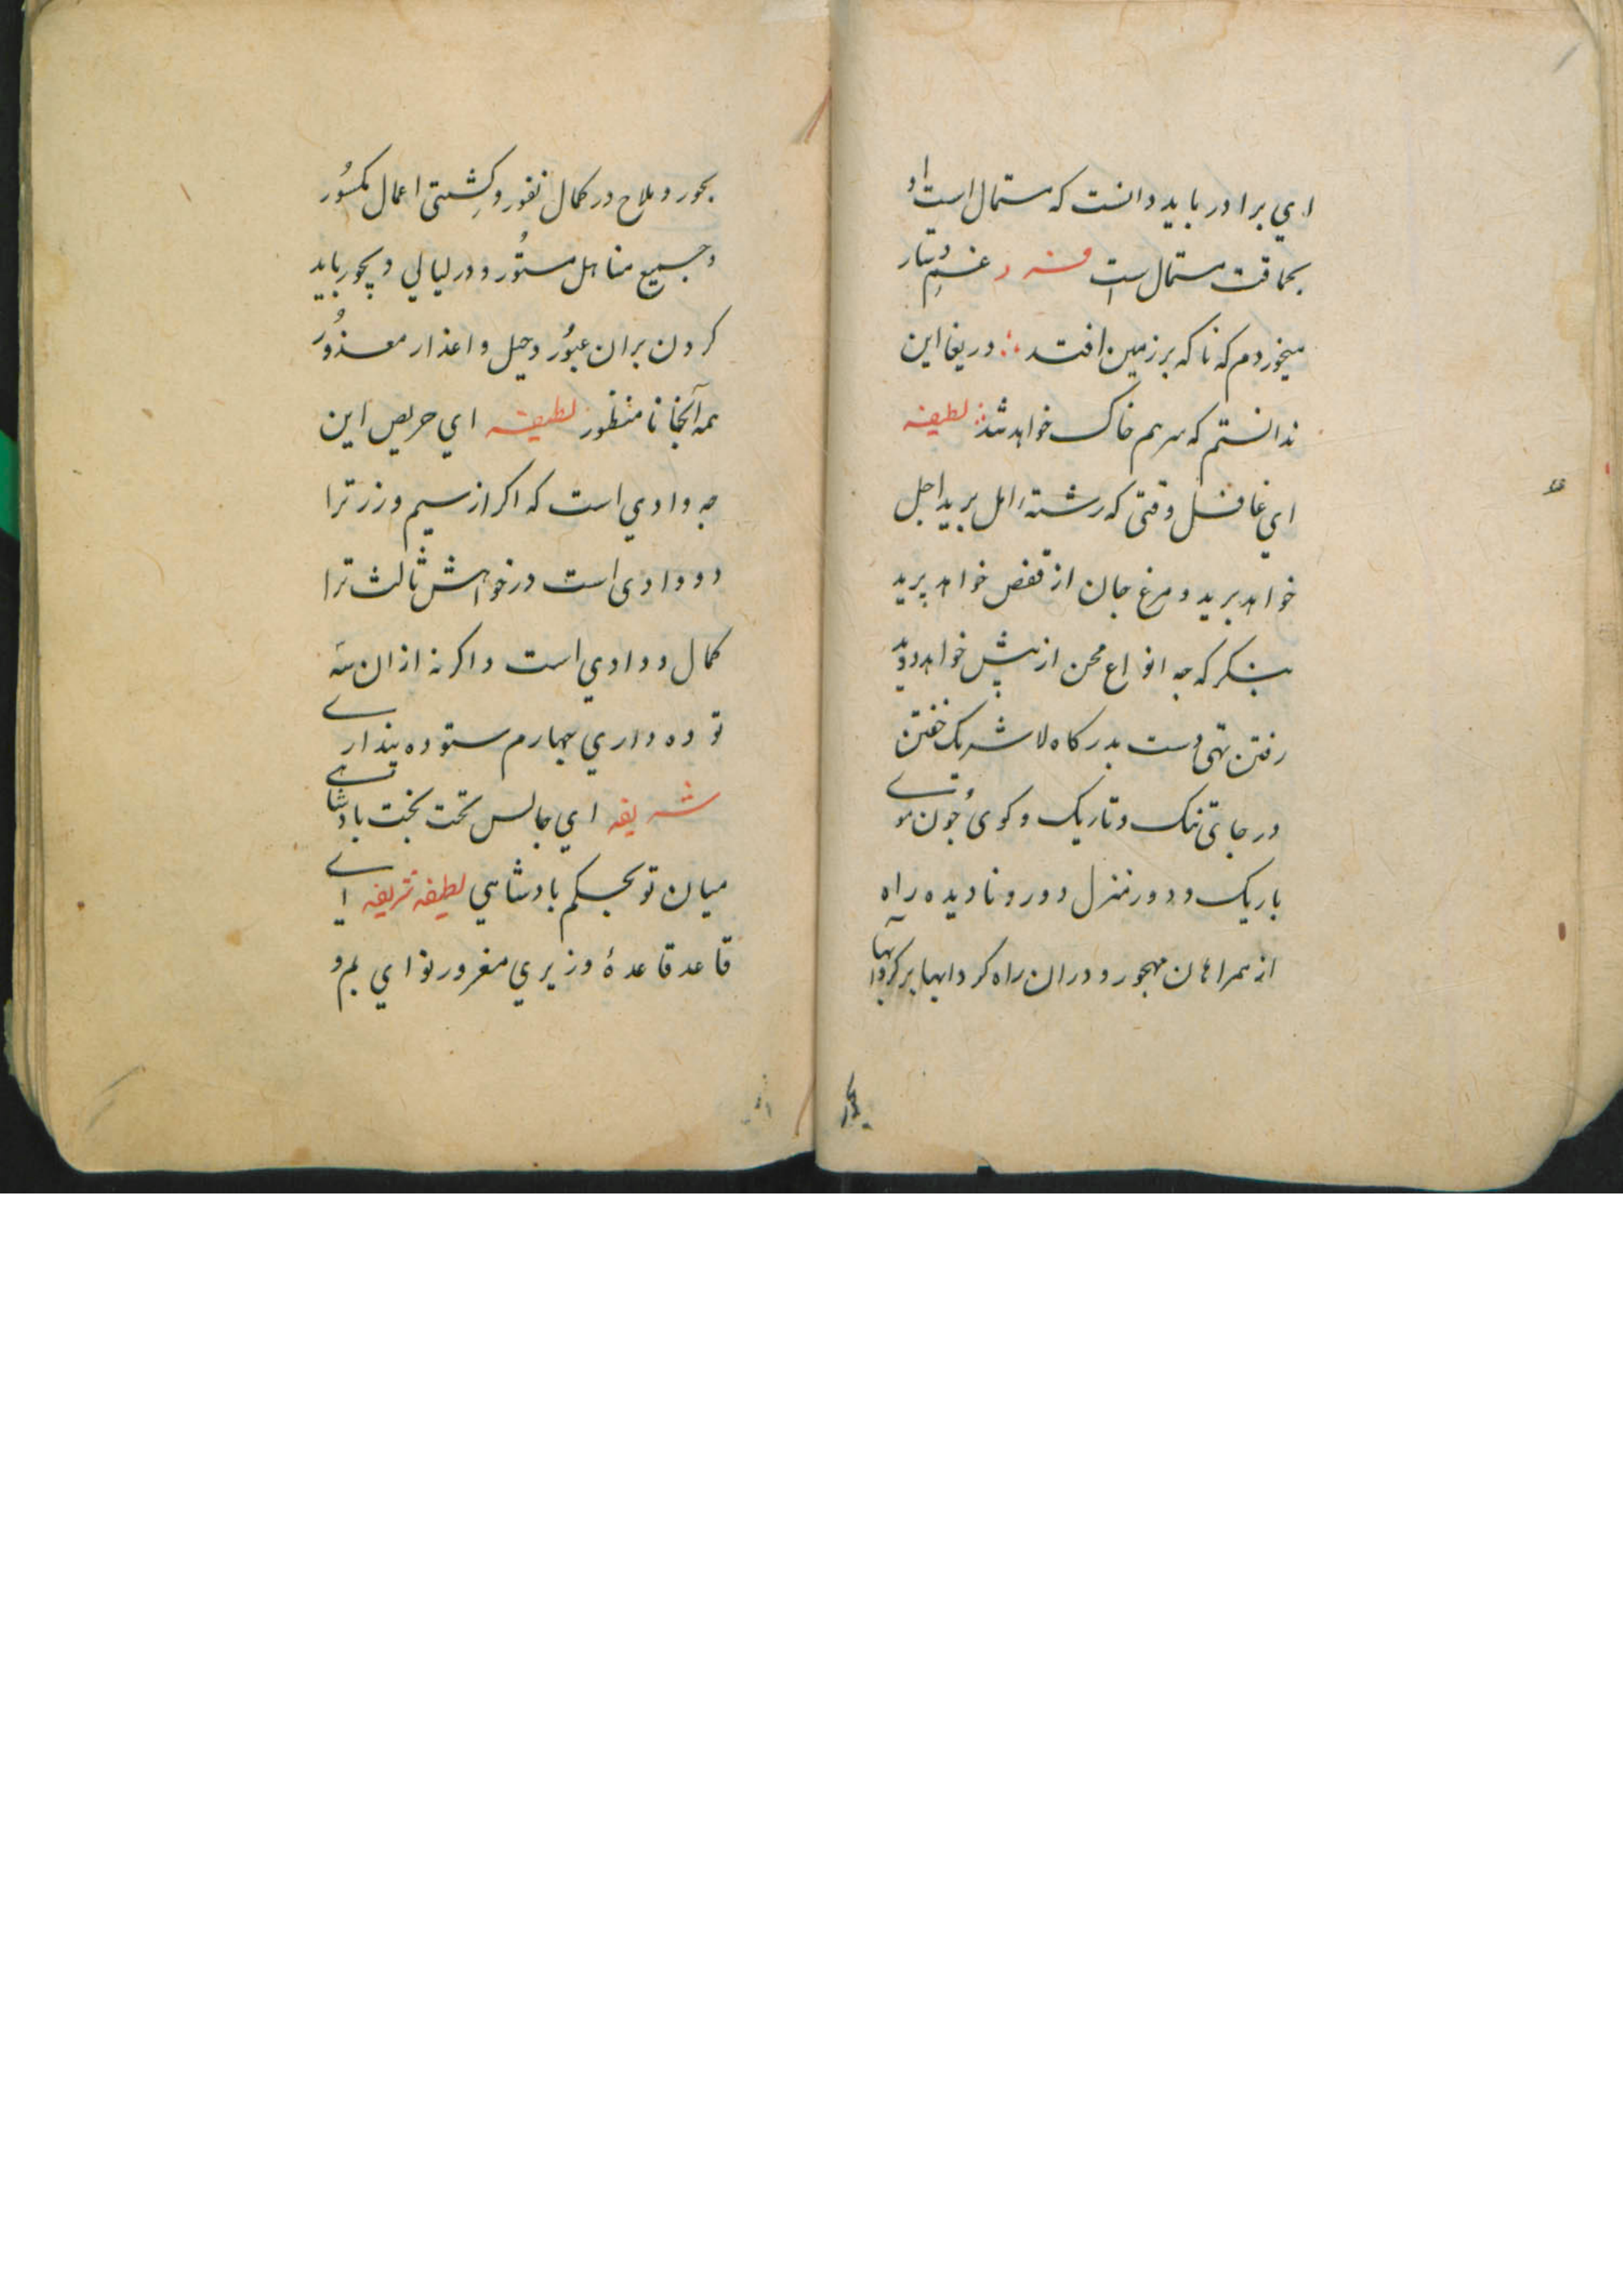 اي برادر بايد دانست كه مستمال است او
بحماقت مستمال است فرد غم دستار
ميخوردم كه ناكه بر زمين افتد دريغا اين
ندانستم كه سرهم خاك خواهد شد لطيفه
اي غافل وقتى كه رشتهٔ امل بريد اجل
خواهد بريد و مرغ جان از قفص خواهد پريد
بنكر كه جه انواع محن از پيش خواهد دويد
رفتن تهى دست بدركاه لاشريك خفتن
در جاى تنك و تاريك و كوئ جون موے
باريك و دور منزل دور و ناديده راه
از همراهان مهجور و دران راه كردابها بر كردابها
بحور
بحور و ملاح در كمال نفور و كِشتى اعمال مكسُور
و جميع مناهل مستُور و در ليالي ديجور بايد
كردن بران عبُور و حيل و اعذار معذُور
همه آنجا نا منظور لطيفه اي حريص اين
جه وادي است كه اكر از سيم و زر ترا
دو وادى است در خواهش ثالث ترا
كمال ودادي است و اكر نه ازان سه
توده داري چهارم ستوده پندارے
شريفه اي جالس تخت بخت بادشاهے
ميان تو بحكم بادشاهي لطيفه شريفه اے
قاعد قاعدهٔ وزيري مغرور نواي بم و